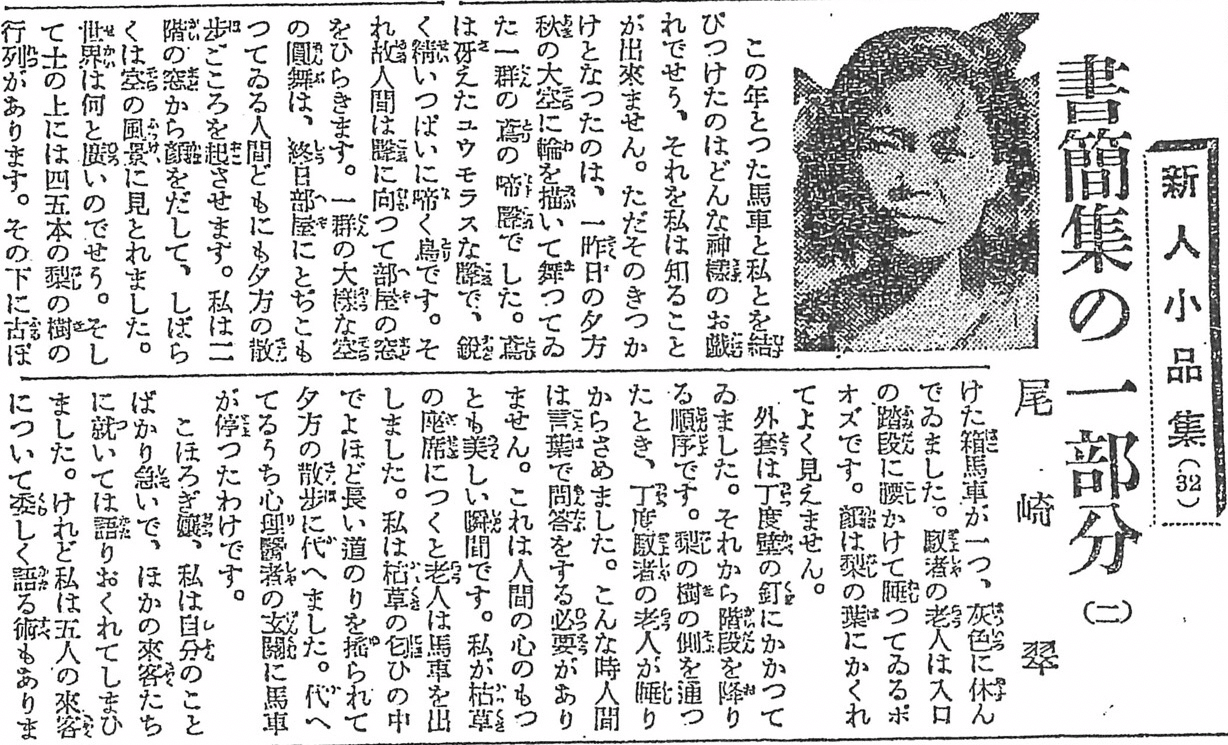 新人小品集(32)
書簡集の一部分(二)
尾崎翠
この年とつた馬車と私とを結
びつけたのはどんな神樣のお戯
れでせう、それを私は知ること
が出來ません。ただそのきつか
けとなつたのは、一昨日の夕方
秋の大空に輪を描いて舞つてゐ
た一群の鳶の啼聲でした。鳶
は冴えたユウモラスな聲で、鋭
く精いつぱいに啼く鳥です。そ
れ故人間は聲に向つて部屋の窓
をひらきます。一群の大樣な空
の圓舞は、終日部屋にとぢこも
つてゐる人間どもにも夕方の散
歩ごころを起させます。私は二
階の窓から顏をだして、しばら
くは空の風景に見とれました。
世界は何と廣いのでせう。そし
て土の上には四五本の梨の樹の
行列があります。その下に古ぼ
けた箱馬車が一つ、灰色に休ん
でゐました。馭者の老人は入口
の踏段に腰かけて睡つてゐるポ
オズです。顏は梨の葉にかくれ
てよく見えません。
外套は丁度壁の釘にかかつて
ゐました。それから階段を降り
る順序です。梨の樹の側を通つ
たとき、丁度馭者の老人が睡り
からさめました。こんな時人間
は言葉で問答をする必要があり
ません。これは人間の心のもつ
とも美しい瞬間です。私が枯草
の座席につくと老人は馬車を出
しました。私は枯草の匂ひの中
でよほど長い道のりを搖られて
夕方の散歩に代へました。代へ
てるうち心理醫者の玄關に馬車
が停つたわけです。
こほろぎ孃、私は自分のこと
ばかり急いで、ほかの來客たち
に就いては語りおくれてしまひ
ました。けれど私は五人の來客
について委しく語る術もありま